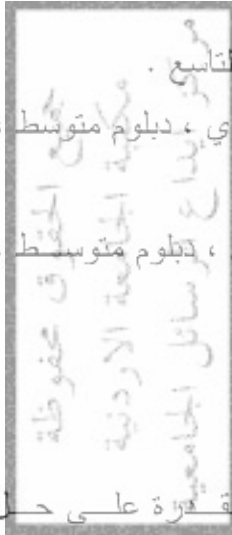 لتاسع .
ي ، دبلوم متوسط
، دبلوم متوسط
قدرة على حل
جميع الحقوق محفوظة
مكتبة الجامعة الاردنية
مركز ايداع الرسائل الجامعية